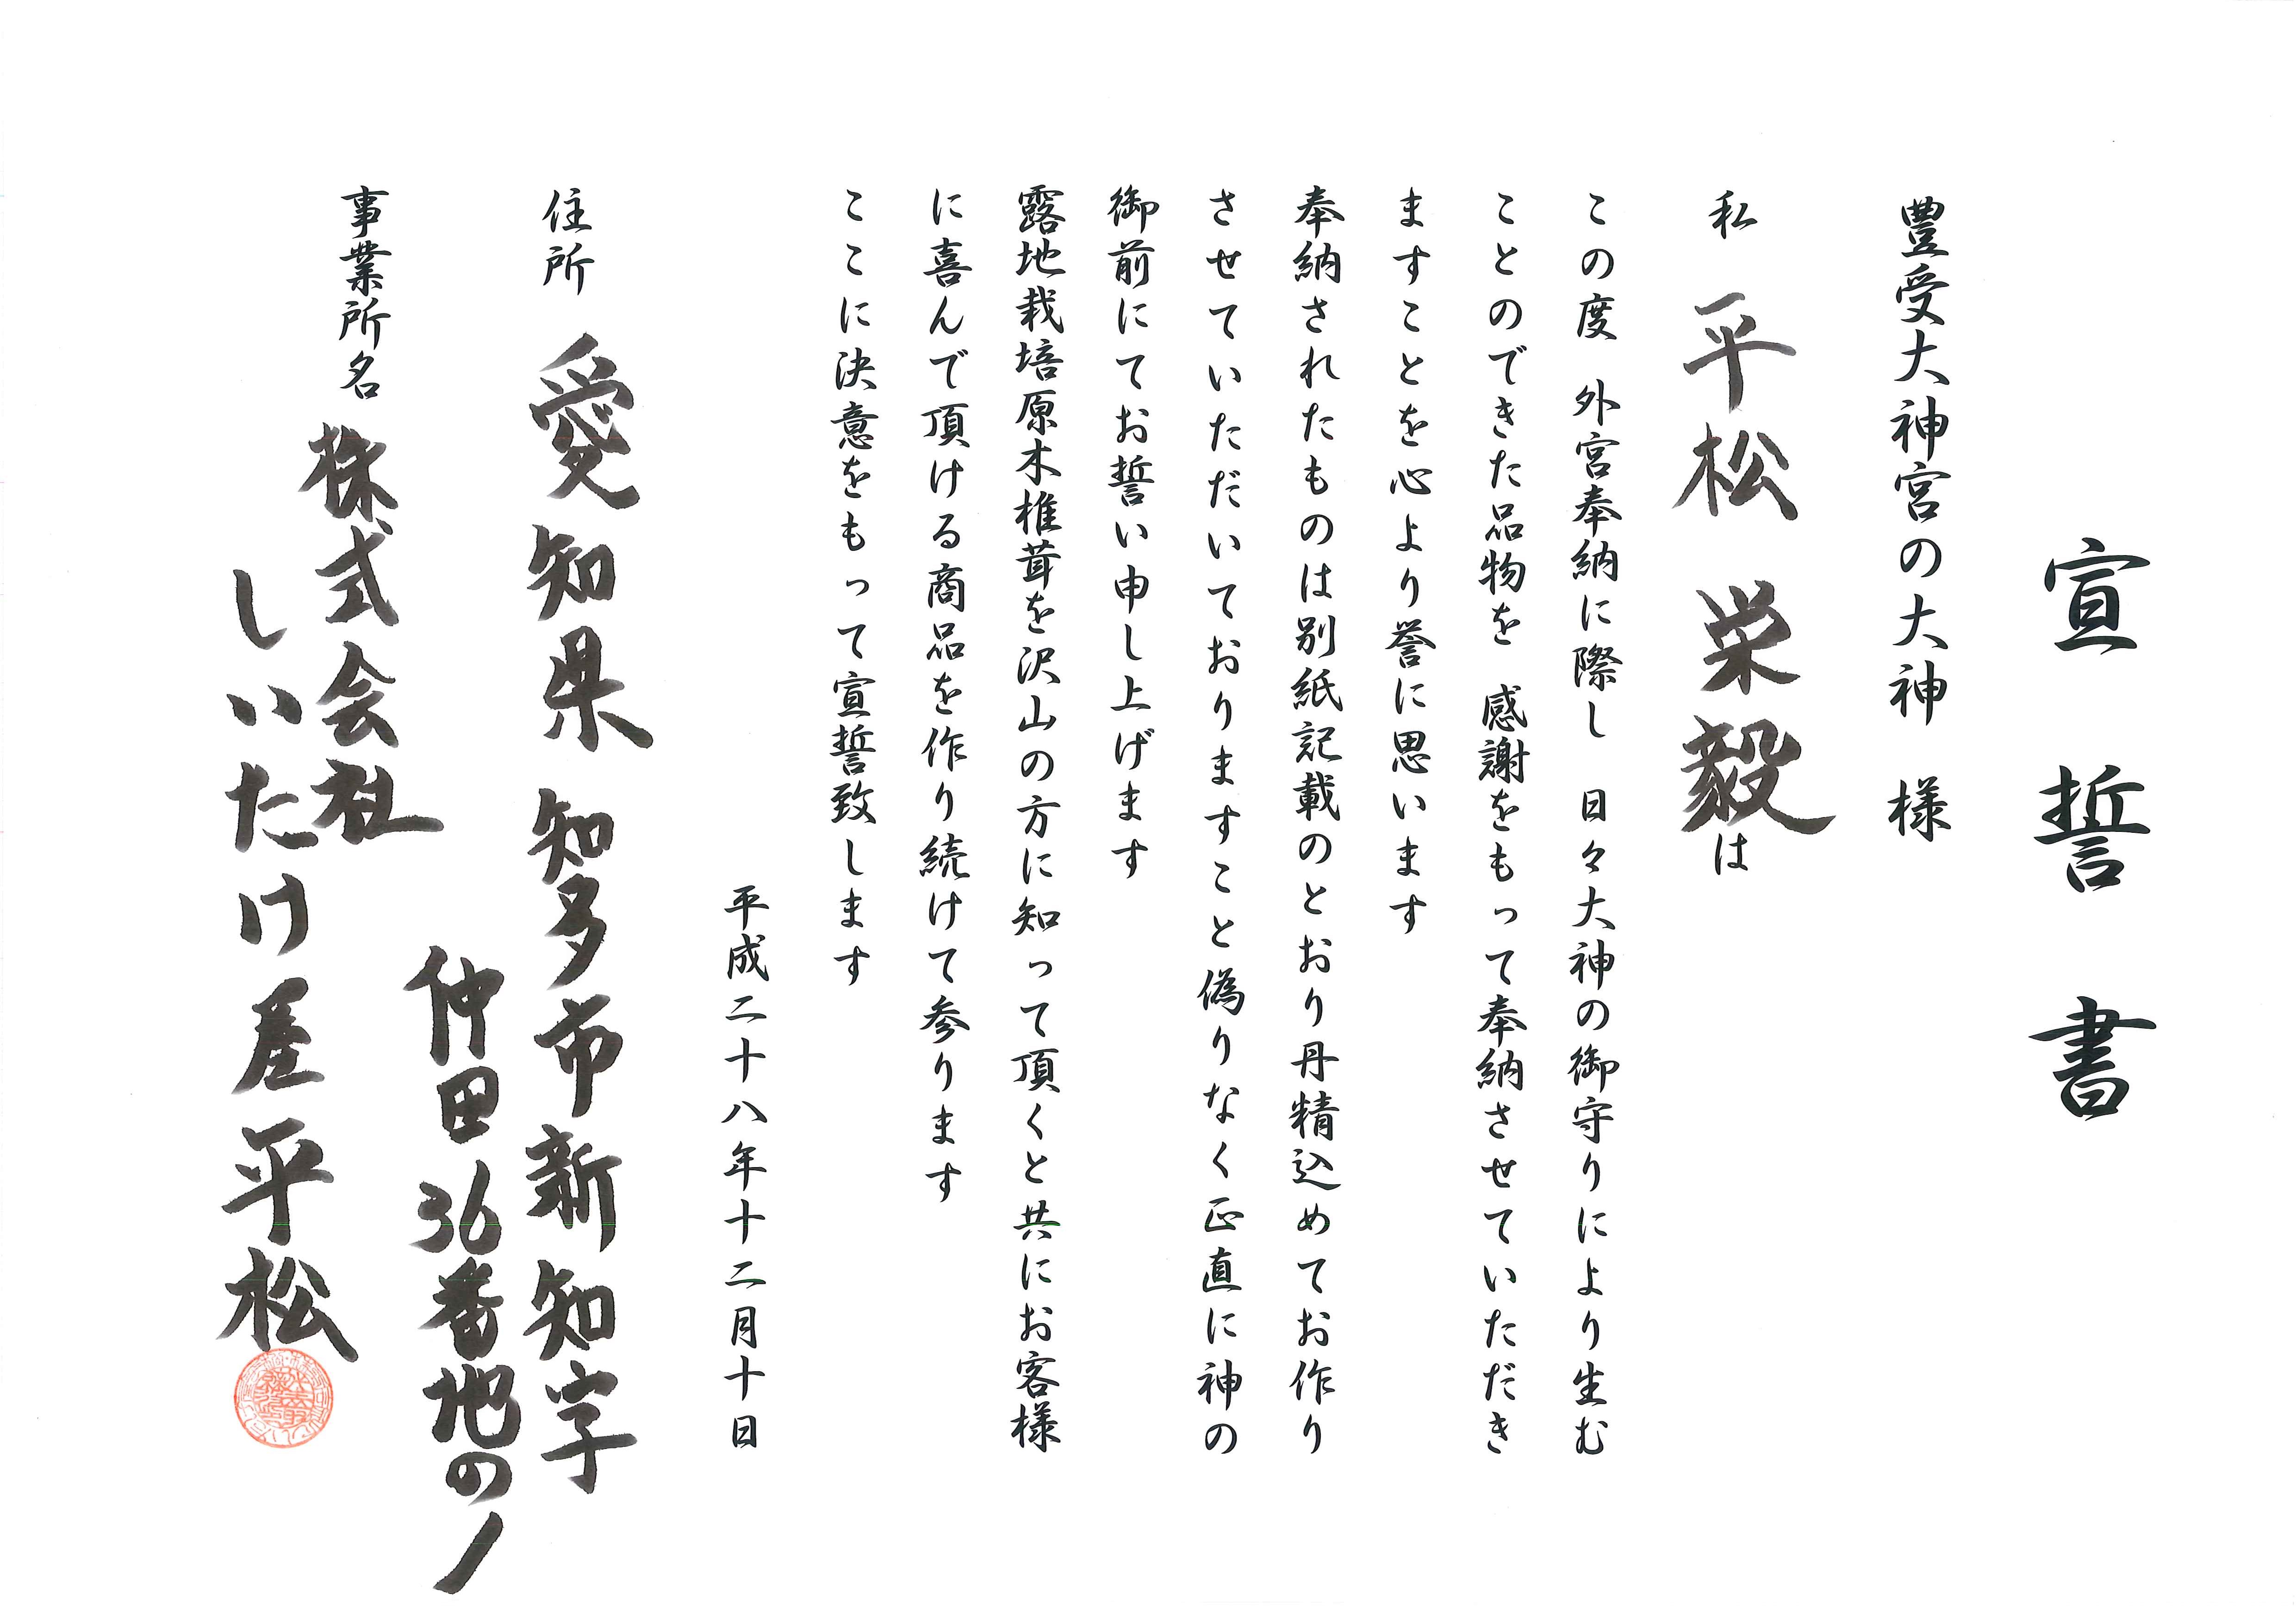 宣誓書
豊受大神宮の大神 様
私 平松 栄毅は
この度 外宮奉納に際し 日々大神の御守りにより生む
ことのできた品物を 感謝をもって奉納させていただき
ますことを心より誉に思います
奉納されたものは別紙記載のとおり丹精込めてお作り
させていただいておりますこと偽りなく正直に神の
御前にてお誓い申し上げます
露地栽培原木椎茸を沢山の方に知って頂くと共にお客様
に喜んで頂ける商品を作り続けて参ります
ここに決意をもって宣誓致します
平成二十八年十二月十日
住所 愛知県知多市新知字
仲田36番地の1
事業所名 株式会社
しいたけ屋平松